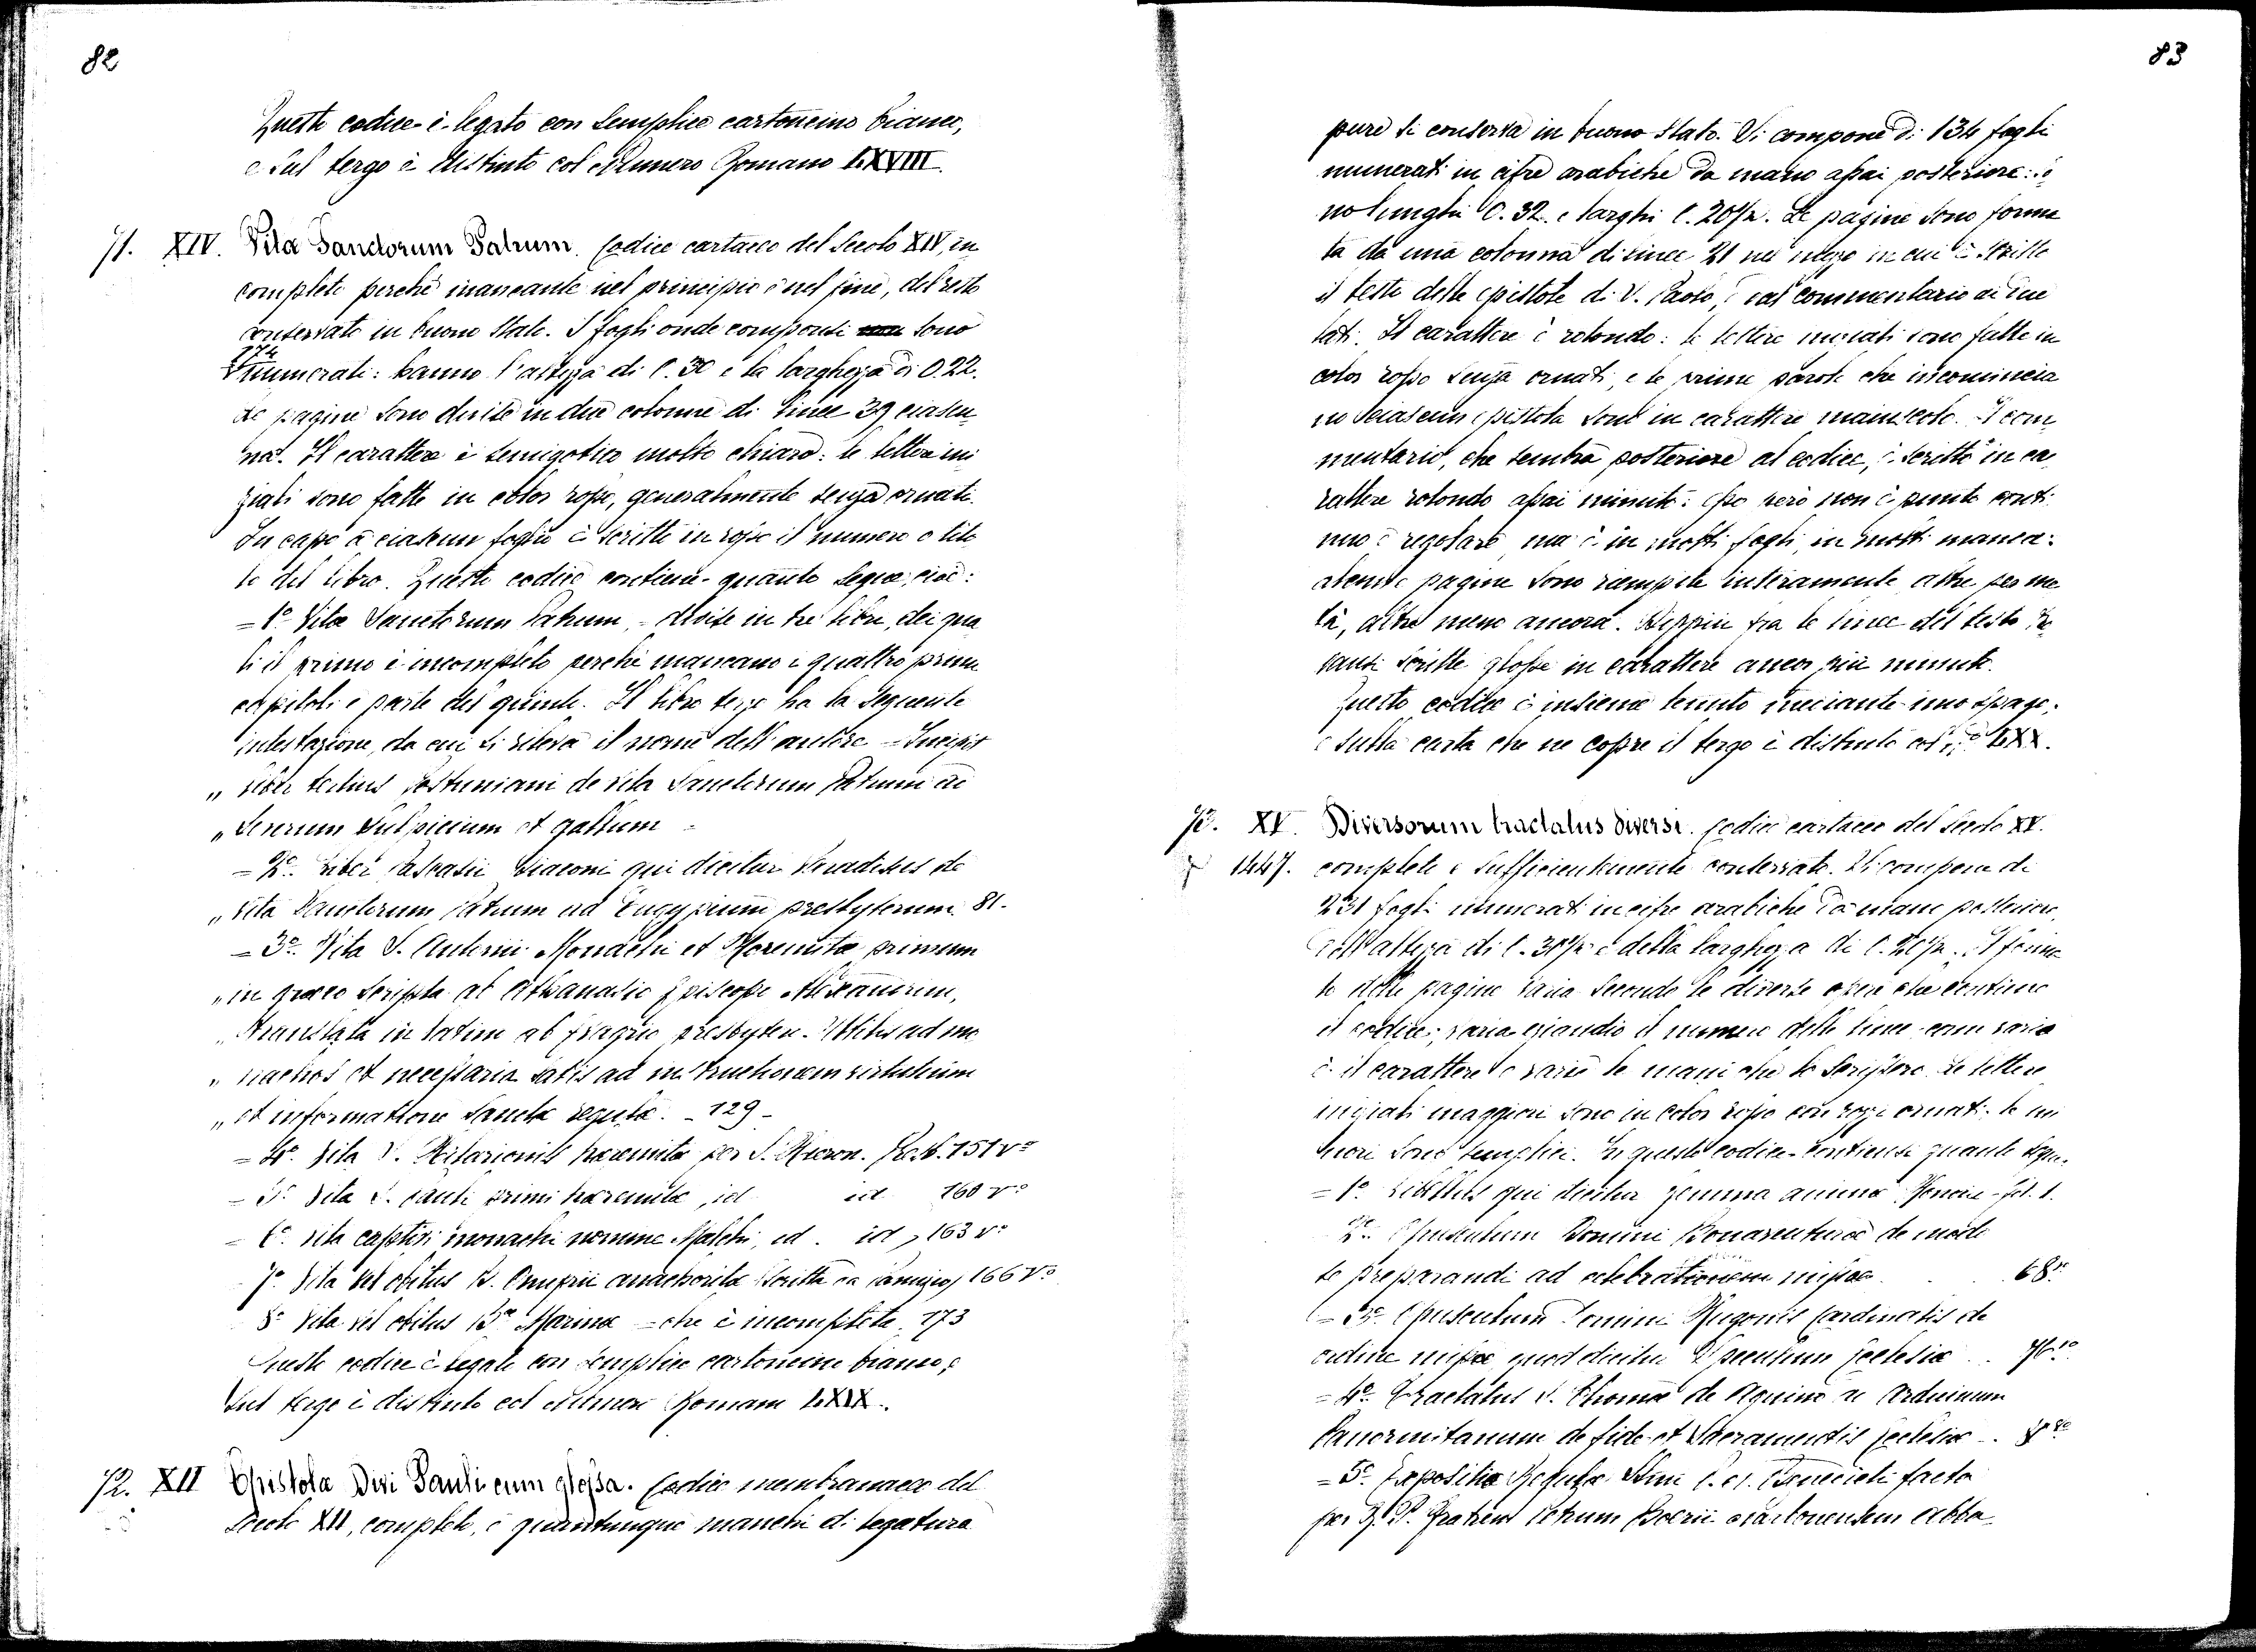 82
Questo codice è legato con semplice cartoncino bianco,
e sul tergo è distinto col Numero Romano LXVIII.
71. XIV. Vitæ Sanctorum Patrum. Codice cartaceo del Secolo XIV, in
completo perchè mancante nel principio e nel fine, del resto
conservato in buono stato. I fogli onde componsi sono
174
numerati: hanno l'altezza di C. 30 e la larghezza di C. 22.
Le pagine sono divise in due colonne di linee 39 ciascu
na. Il carattere è semigotico molto chiaro: le lettere ini
ziali sono fatte in color rosso, generalmente senza ornati.
In capo a ciascun foglio è scritto in rosso il numero o tito
lo del libro. Questo codice contiene quanto segue, cioè:
= 1º Vitæ Sanctorum Patrum, = divise in tre libri, dei qua
li il primo è incompleto perchè mancano i quattro primi
capitoli e parte del quinto. Il libro terzo ha la seguente
intestazione, da cui si rileva il nome dell'autore = Incipit
„ liber tertius Postumiani de vita Sanctorum Patrum ad
„ Severum Sulpicium et Gallum =
= 2º Liber Pascasii Diaconi qui dicitur Paradisus de
„ vita Sanctorum Patrum ad Eugypium presbyterum 81.
= 3º Vita S. Antonii Monachi et Heremitæ primum
„ in græco scripta ab Athanasio Episcopo Alexandrino,
„ translata in latino ab Evagrio presbytero. Utilis ad mo
„ nachos et necessaria satis ad instructionem virtutum
„ et informatione sanctæ regulæ. - 129 -
= 4º Vita S. Hilarionis heremitæ per S. Hieron. Presb. 151 vº
= 5º Vita S. Pauli primi heremitæ, id id 160 vº
= 6º Vita captivi monachi nomine Malchi, id. id, 163 vº
7º Vita vel obitus B. Onuprii anachoritæ scritta da 166 vº
8º Vita vel obitus Bæ Marinæ = che è incompleta. 173
Questo codice è legato con semplice cartoncino bianco, e
sul tergo è distinto col Numero Romano LXIX.
72. XII Epistolæ Divi Pauli cum glossa. Codice membranaceo del
Secolo XII, completo, e quantunque manchi di legatura
83
pure si conserva in buono stato. Si compone di 134 fogli
numerati in cifre arabiche da mano assai posteriore: so
no lunghi C. 32. e larghi C. 20½. Le pagine sono forma
te da una colonna di linee 21 nel mezzo in cui è scritto
il testo delle epistole di S. Paolo, e dal commentario ai due
lati. Il carattere è rotondo: le lettere iniziali sono fatte in
color rosso senza ornati, e le prime parole che incomincia
no ciascun epistola sono in carattere maiuscolo. Il com
mentario, che sembra posteriore al codice, è scritto in ca
rattere rotondo assai minuto: esso però non è punto conti
nuo e regolare, ma è in molti fogli, in molti manca:
alcune pagine sono riempite interamente, altre per me
tà, altre meno ancora. Dippiù fra le linee del testo tro
vansi scritte glosse in carattere ancor più minuto.
Questo codice è insieme tenuto mediante uno spago,
e sulla carta che ne copre il tergo è distinto col nº LXX.
73. XV. Diversorum tractatus diversi. Codice cartaceo del Secolo XV.
1447. completo e sufficientemente conservato. Si compone di
231 fogli numerati in cifre arabiche da mano posteriore,
dell'altezza di C. 30½ e della larghezza di C. 20½. Il forma
to delle pagine varia secondo le diverse opere che contiene
il codice; varia eziandio il numero delle linee, come vario
è il carattere e varie le mani che lo scrissero. Le lettere
iniziali maggiori sono in color rosso con rozzi ornati: le mi
nori sono semplici. In questo codice contiensi quanto segue.
= 1º Libellus qui dicitur gemma animæ fol. 1.
2º Opusculum Domini Bonaventuræ de modo
se preparandi ad celebrationem missæ . . 68 vº
= 3º Opusculum Domini Hugonis Cardinalis de
ordine missæ quod dicitur Speculum Ecclesiæ . . 76 vº
= 4º Tractatus S. Thomæ de Aquino ad Arduinum
Panormitanum de fide et Sacramentis Ecclesiæ . .
= 5º Expositio Regulæ Smi P. N. Benedicti facta
per R. P. Fratrem Petrum Boerii abba